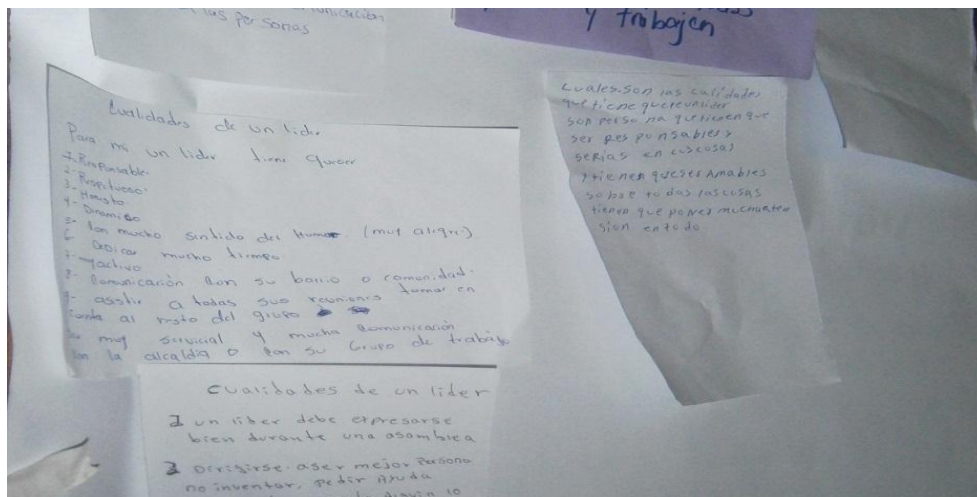 las personas
y trabajen
Cualidades de un lider
Para mi un lider tiene que ser
1- Responsable.
2- Respetuoso.
3- Honesto.
4- Dinamico
5- Con mucho sentido del humor. (muy alegre)
6 Dedicar mucho tiempo
7- activo
8- Comunicación con su barrio o comunidad.
9- asistir a todas sus reuniones tomar en
cuenta al resto del grupo
Ser muy servicial y mucha comunicación
con la alcaldia o con su Grupo de trabajo
Cuales son las calidades
que tiene que reunir lider
son persona que tienen que
ser responsables y
serias en cus cosas
y tienen que ser Amables
sobre todas las cosas
tienen que poner mucha aten
sion en todo
cualidades de un lider
1 un lider debe expresarse
bien durante una asamblea
2 Dirigirse a ser mejor Persona
no inventar, pedir Ayuda